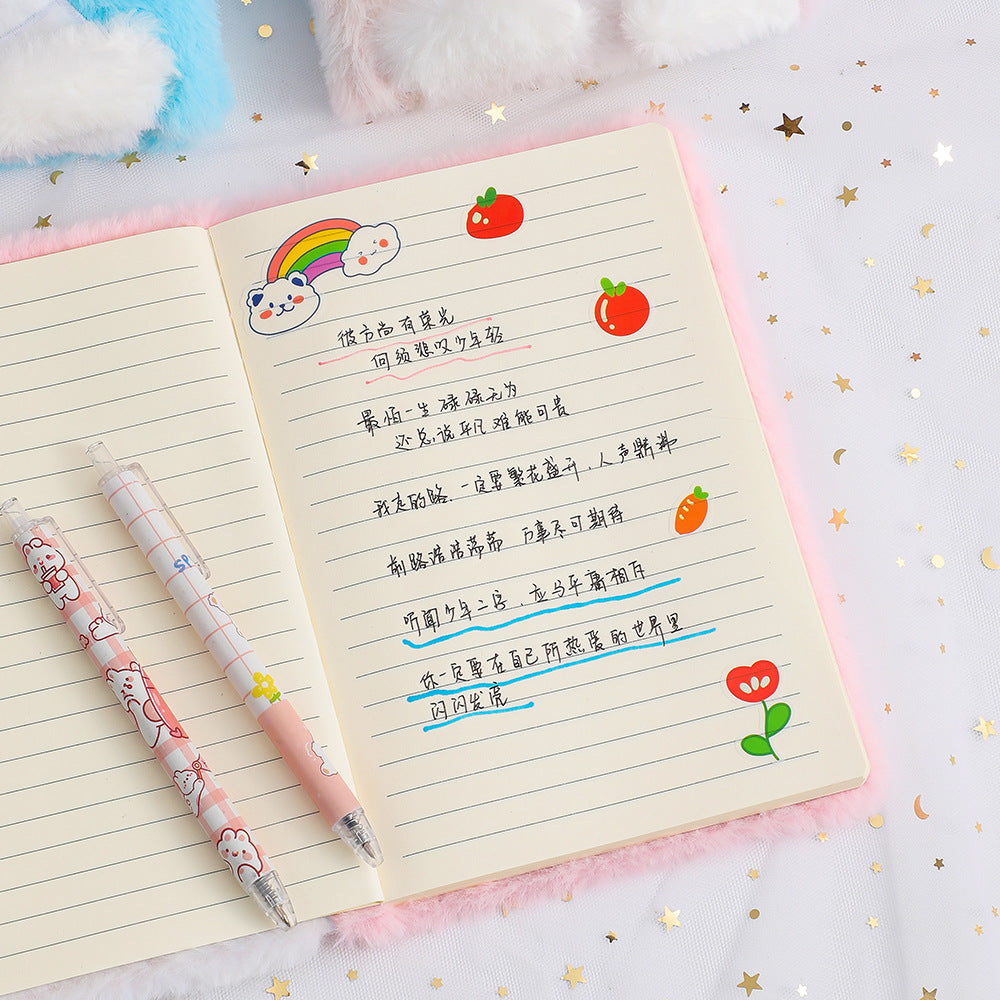 彼方尚有荣光
何须悲叹少年轻
最怕一生碌碌无为
还总说平凡难能可贵
我走的路，一定要繁花盛开，人声鼎沸
前路浩浩荡荡 万事尽可期待
听闻少年二字，应与平庸相斥
你一定要在自己所热爱的世界里
闪闪发亮
SP